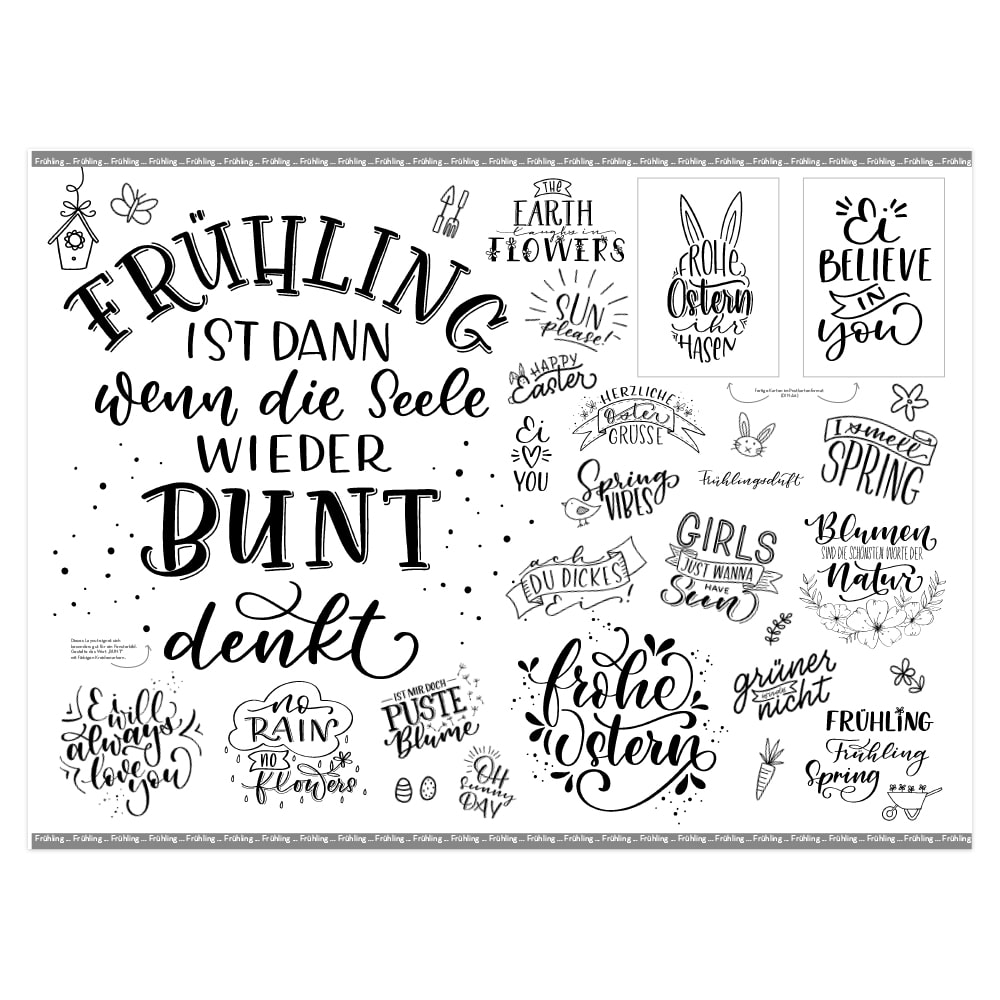 Frühling ... Frühling ... Frühling ... Frühling ... Frühling ... Frühling ... Frühling ... Frühling ... Frühling ... Frühling ... Frühling ... Frühling ... Frühling ... Frühling ... Frühling ... Frühling ... Frühling ... Frühling ... Frühling ... Frühling ... Frühling ... Frühling ... Frühling ... Frühling ... Frühling
FRÜHLING
IST DANN
wenn die Seele
WIEDER
BUNT
denkt
THE
EARTH
laughs in
FLOWERS
SUN
please!
HAPPY
Easter
FROHE
Ostern
ihr
HASEN
Ei
BELIEVE
IN
you
fertige Karten im Postkartenformat
(DIN A6)
HERZLICHE
Oster
GRÜSSE
Ei
YOU
Spring
VIBES
Frühlingsduft
I smell
SPRING
ach
DU DICKES
Ei!
GIRLS
JUST WANNA
HAVE
Sun
Blumen
SIND DIE SCHÖNSTEN WORTE DER
Natur
Dieses Layout eignet sich
besonders gut für ein Fensterbild.
Gestalte das Wort „BUNT"
mit farbigen Kreidemarkern.
Ei will
always
love you
no
RAIN
no
flowers
IST MIR DOCH
PUSTE
Blume
OH
Sunny
DAY
frohe
Ostern
grüner
wirds
nicht
FRÜHLING
Frühling
Spring
Frühling ... Frühling ... Frühling ... Frühling ... Frühling ... Frühling ... Frühling ... Frühling ... Frühling ... Frühling ... Frühling ... Frühling ... Frühling ... Frühling ... Frühling ... Frühling ... Frühling ... Frühling ... Frühling ... Frühling ... Frühling ... Frühling ... Frühling ... Frühling ... Frühling